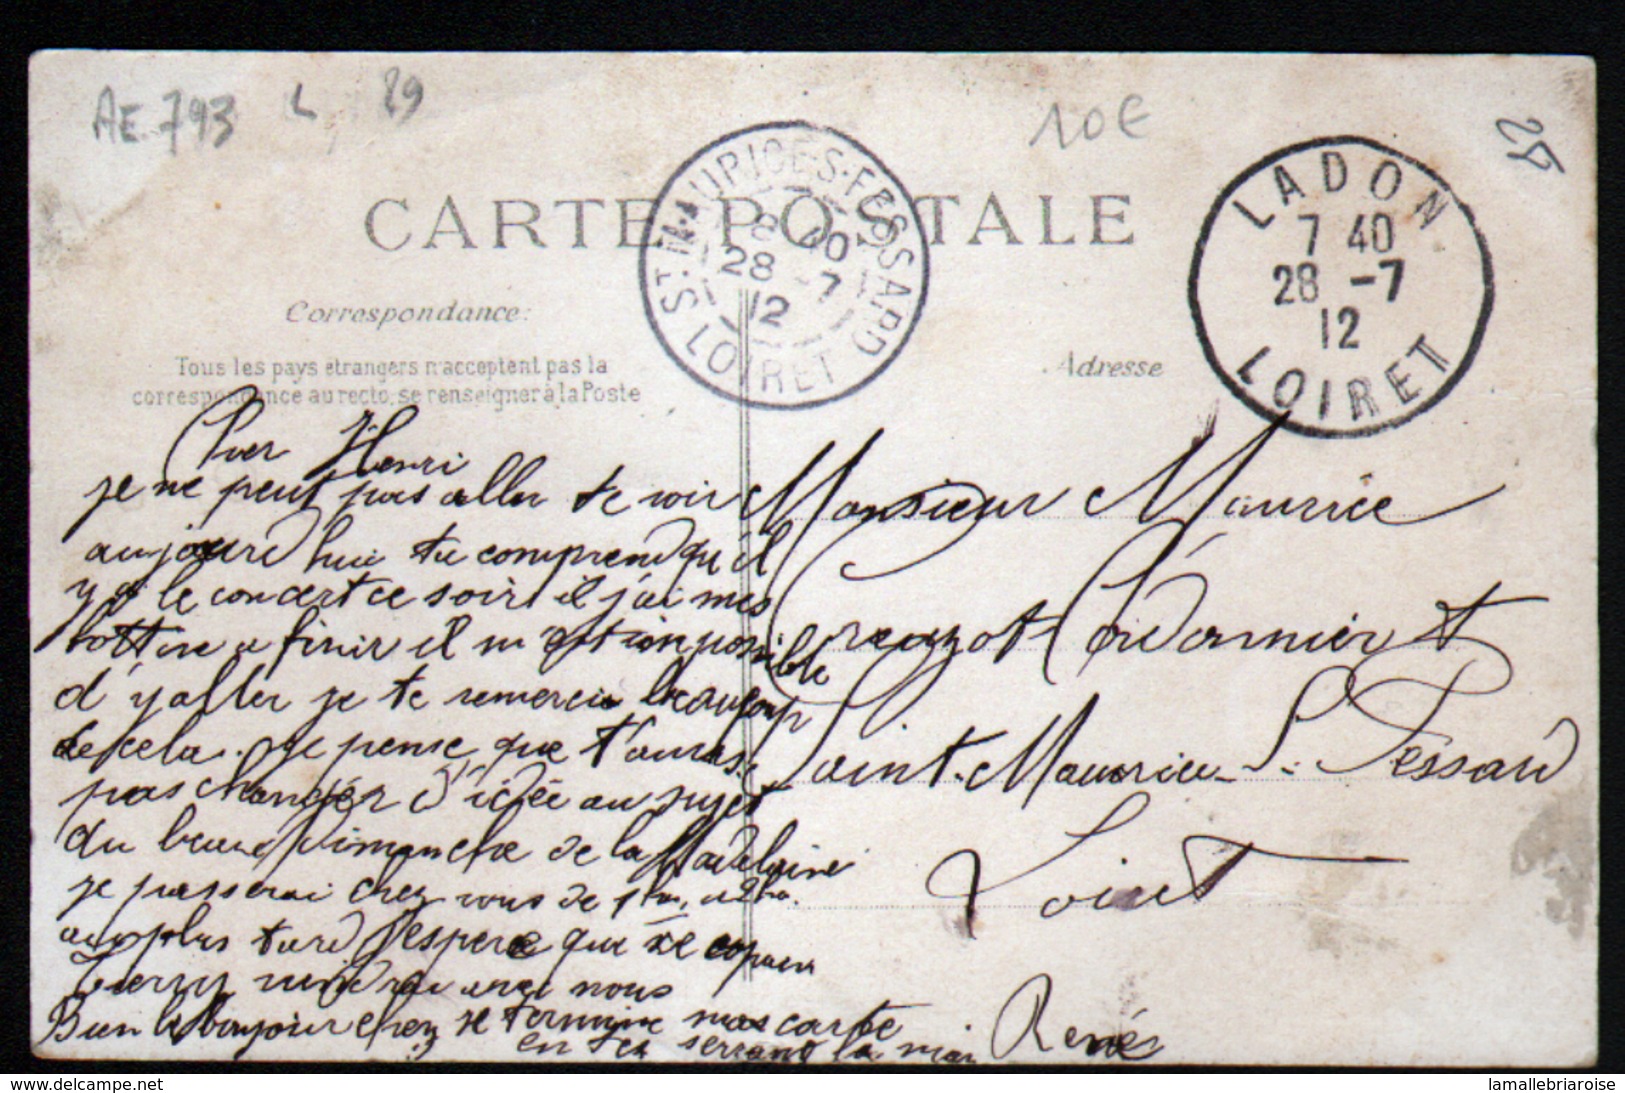 AE 793 L 29
10€
25
CARTE POSTALE
ST MAURICE-S-FESSARD
8 40
28 -7
12
LOIRET
LADON
7 40
28 -7
12
LOIRET
Correspondance:
Tous les pays étrangers n'acceptent pas la
correspondance au recto, se renseigner à la Poste
Adresse
Cher Henri
je ne peut pas aller te voir
aujourd hui tu comprend qu'il
y a le concert ce soir il j'ai mes
bottine a finir il m'est impossible
d'y aller je te remercie beaucoup
de cela. Je pense que t'auras
pas changér d'idée au sujet
du beau Dimanche de la Madelaine
je passerai chez vous de 1h a 2h
au plus tard J'espere que le copain
viendra avec nous
Bien le bonjour chez je termine mas carte
en te serrant la main
René
Monsieur Maurice
Creuzot Cordonnier
Saint-Maurice S. Féssard
Loiret
lamallebriaroise
www.delcampe.net